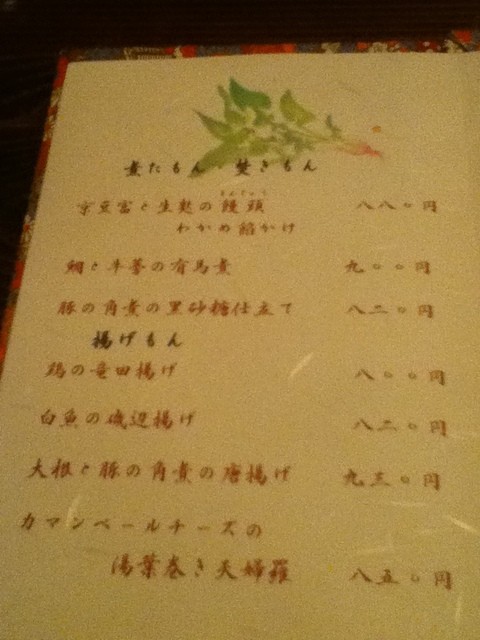 煮たもん・焚きもん
京豆富と生麩の饅頭 八八〇円
まんじゅう
わかめ餡かけ
鯛と牛蒡の有馬煮 九〇〇円
豚の角煮の黒砂糖仕立て 八二〇円
揚げもん
鶏の竜田揚げ 八〇〇円
白魚の磯辺揚げ 八二〇円
大根と豚の角煮の唐揚げ 九三〇円
カマンベールチーズの
湯葉巻き天婦羅 八五〇円